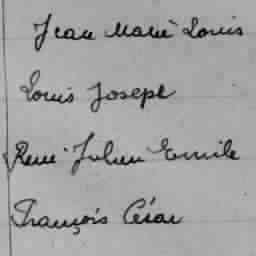 Jean Marie Louis
Louis Joseph
René Julien Emile
François César